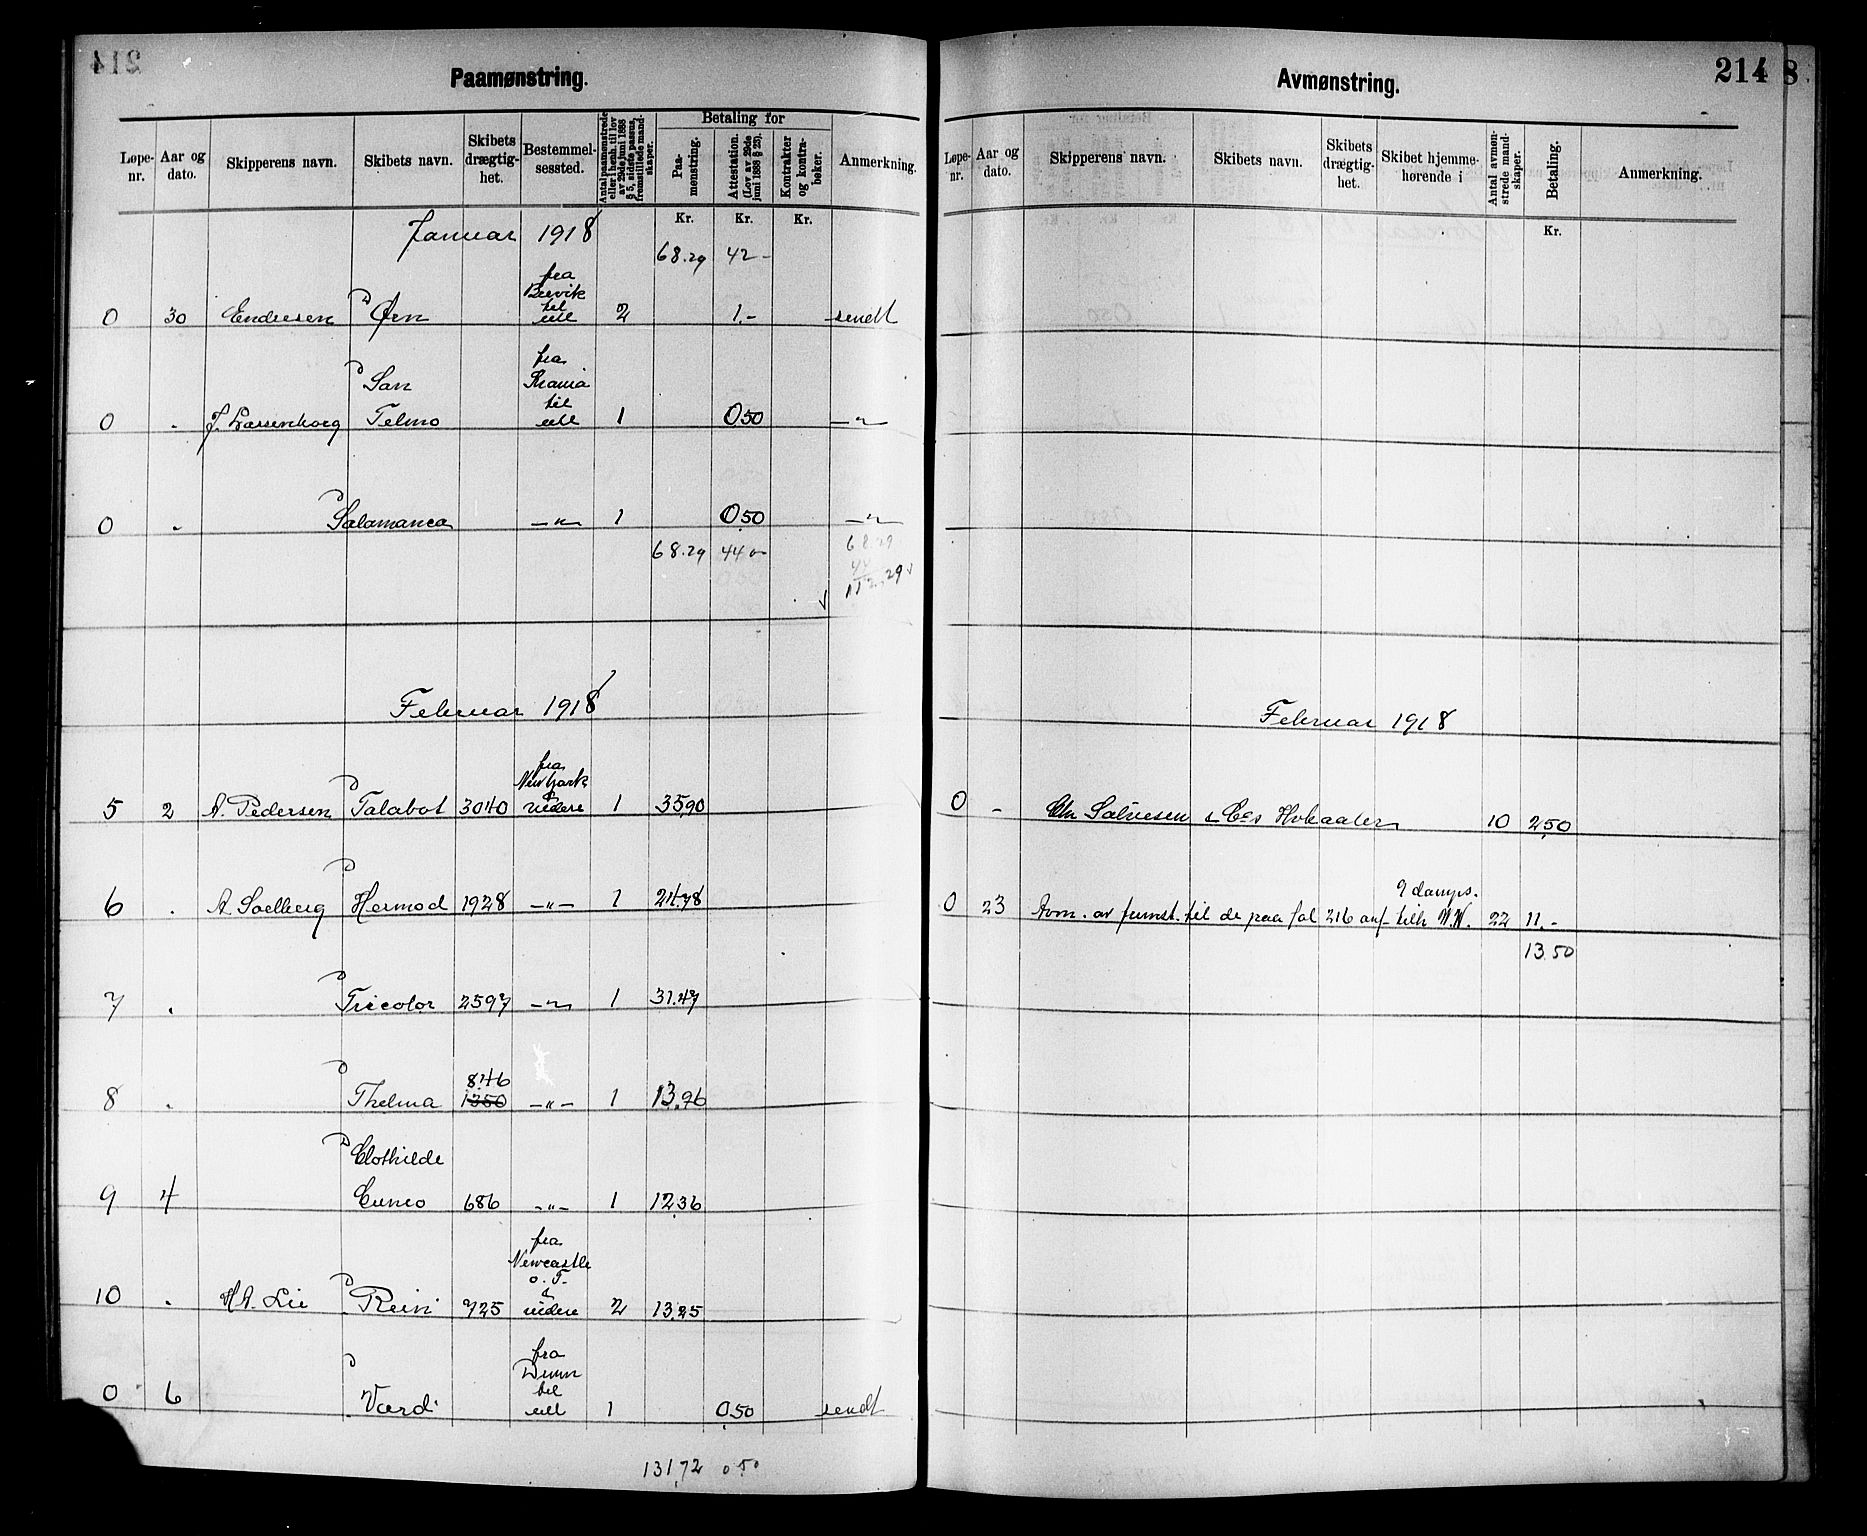 214
Paamønstring.
Løpe-nr. | Aar og dato. | Skipperens navn. | Skibets navn. | Skibets drægtig-het. | Bestemmel-sessted. | Antal paamønstrede eller i henh. til lov av 29de juni 1888 § 5, sidste passus, fremstillede mand-skaper. | Betaling for | Paa-mønstring. | Attestation. (Lov av 29de juni 1888 § 23). | Kontrakter og kontra-bøker. | Anmerkning.
Kr. Kr. Kr.
Januar 1918 68.29 42-
0 30 Endresen D Ørn fra Brevik til utl 2 1.- sendt
0 . D San Telmo fra Krania til utl 1 0.50 -"-
0 . D Salamanca -"- 1 0.50 -"-
68.29 44.-
68.29
44
112.29
Februar 1918
5 2 A. Pedersen D Talabot 3040 fra New York & videre 1 35.90
6 . A. Solberg D Hermod 1928 -"- 1 24.78
7 . D Tricolor 2597 -"- 1 31.47
8 . D Thelma 846 1350 -"- 1 13.96
9 4 D Clothilde Cuneo 686 -"- 1 12.36
10 . H.A. Lie D Rein 725 fra Newcastle o. T. & videre 2 13.25
0 6 D Værd fra Drmn til utl 1 0.50 sendt
131.72 0.50
Avmønstring.
214 8
Løpe-nr. | Aar og dato. | Skipperens navn. | Skibets navn. | Skibets drægtig-het. | Skibet hjemme-hørende i | Antal avmøn-strede mand-skaper. | Betaling. | Anmerkning.
Kr.
Februar 1918
0 - Chr Salvesen & Co's Hvbaater 10 2.50
0 23 Avm. av funst. til de paa fol 216 anf- 9 damps. tilh W.W. 22 11.-
13.50